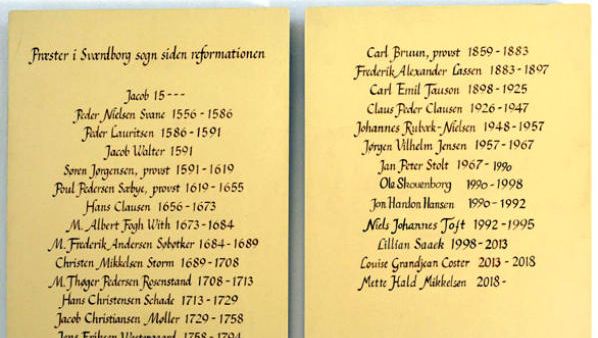 Præster i Sværdborg sogn siden reformationen
Jacob 15---
Peder Nielsen Svane 1556-1586
Peder Lauritsen 1586-1591
Jacob Walter 1591
Søren Jørgensen, provst 1591-1619
Poul Pedersen Sæbye, provst 1619-1655
Hans Clausen 1656-1673
M. Albert Fogh With 1673-1684
M. Frederik Andersen Sobotker 1684-1689
Christen Mikkelsen Storm 1689-1708
M. Thøger Pedersen Rosenstand 1708-1713
Hans Christensen Schade 1713-1729
Jacob Christiansen Møller 1729-1758
Jens Eriksen Westengaard 1758-1794
Carl Bruun, provst 1859-1883
Frederik Alexander Lassen 1883-1897
Carl Emil Tauson 1898-1925
Claus Peder Clausen 1926-1947
Johannes Rubæk-Nielsen 1948-1957
Jørgen Vilhelm Jensen 1957-1967
Jan Peter Stolt 1967-1990
Ole Skouenborg 1990-1998
Jon Hardon Hansen 1990-1992
Niels Johannes Toft 1992-1995
Lillian Saaek 1998-2013
Louise Grandjean Coster 2013-2018
Mette Hald Mikkelsen 2018-